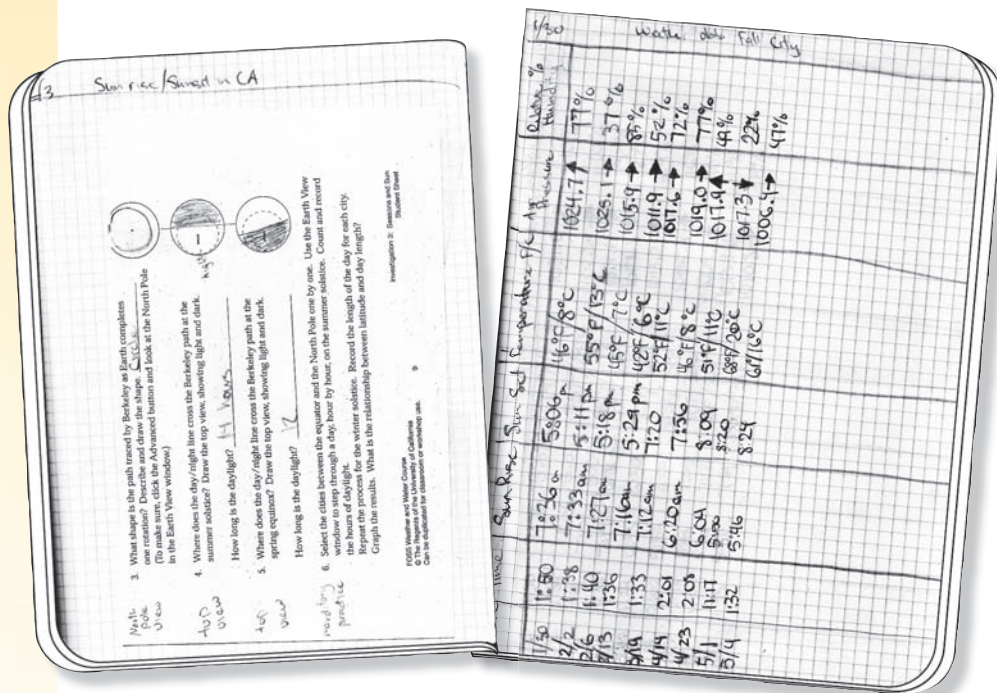 3 Sun rise/Sunset in CA
North Pole view
3. What shape is the path traced by Berkeley as Earth completes
one rotation? Describe and draw the shape. Circle
(To make sure, click the Advanced button and look at the North Pole
in the Earth View window.)
top view
4. Where does the day/night line cross the Berkeley path at the
summer solstice? Draw the top view, showing light and dark.
night
How long is the daylight? 14 hours
top view
5. Where does the day/night line cross the Berkeley path at the
spring equinox? Draw the top view, showing light and dark.
How long is the daylight? 12
practice
6. Select the cities between the equator and the North Pole one by one. Use the Earth View
window to step through a day, hour by hour, on the summer solstice. Count and record
the hours of daylight.
Repeat the process for the winter solstice. Record the length of the day for each city.
Graph the results. What is the relationship between latitude and day length?
FOSS Weather and Water Course
© The Regents of the University of California
Can be duplicated for classroom or workshop use.
9
Investigation 3: Seasons and Sun
Student Sheet
1/30 Weather data Fall City
Time Sun Rise Sun Set Temperature F/C Air Pressure Relative % Humidity
1/30 1:50 7:36 am 5:06 pm 46°F/8°C 1024.7↑ 77%
2/2 1:38 7:33 am 5:11 pm 55°F/13°C 1023.1→ 37%
2/6 1:40 7:27 am 5:18 pm 45°F/7°C 1015.9→ 85%
2/13 1:36 7:16am 5:29 pm 42°F/6°C 1011.9→ 52%
3/19 1:33 7:12am 7:20 52°F/11°C 1017.6→ 72%
4/14 2:01 6:20am 7:56 46°F/8°C 1019.0→ 77%
4/23 2:08 6:04 8:09 51°F/11°C 1017.4↑ 49%
5/1 1:17 8:20 68°F/20°C 1017.3↓ 22%
5/4 1:32 5:46 8:24 61/16°C 1006.4→ 47%